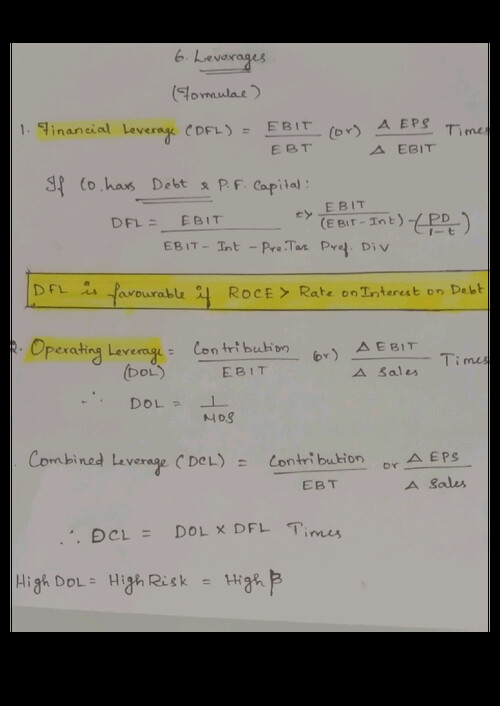 6. Leverages
(Formulae)
1. Financial Leverage (DFL) = EBIT / EBT (or) Δ EPS / Δ EBIT Times
If Co. has Debt & P.F. Capital:
DFL = EBIT / EBIT - Int - Pre.Tax Pref. Div => EBIT / (EBIT - Int) - (PD / 1-t)
DFL is favourable if ROCE > Rate on Interest on Debt
2. Operating Leverage (DOL) = Contribution / EBIT (or) Δ EBIT / Δ Sales Times
∴ DOL = 1 / MOS
. Combined Leverage (DCL) = Contribution / EBT or Δ EPS / Δ Sales
∴ DCL = DOL X DFL Times
High DOL = High Risk = High β